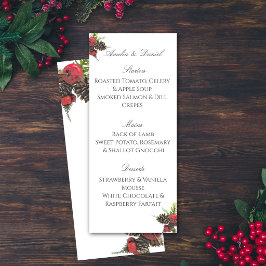 Amelia & Daniel
Starters
Roasted Tomato, Celery
& Apple Soup
Smoked Salmon & Dill
Crepes
Mains
Rack of Lamb
Sweet Potato, Rosemary
& Shallot Gnocchi
Desserts
Strawberry & Vanilla
Mousse
White Chocolate &
Raspberry Parfait